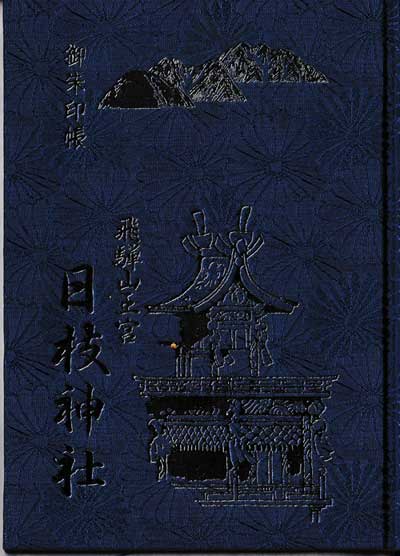 御朱印帳
飛騨山王宮
日枝神社